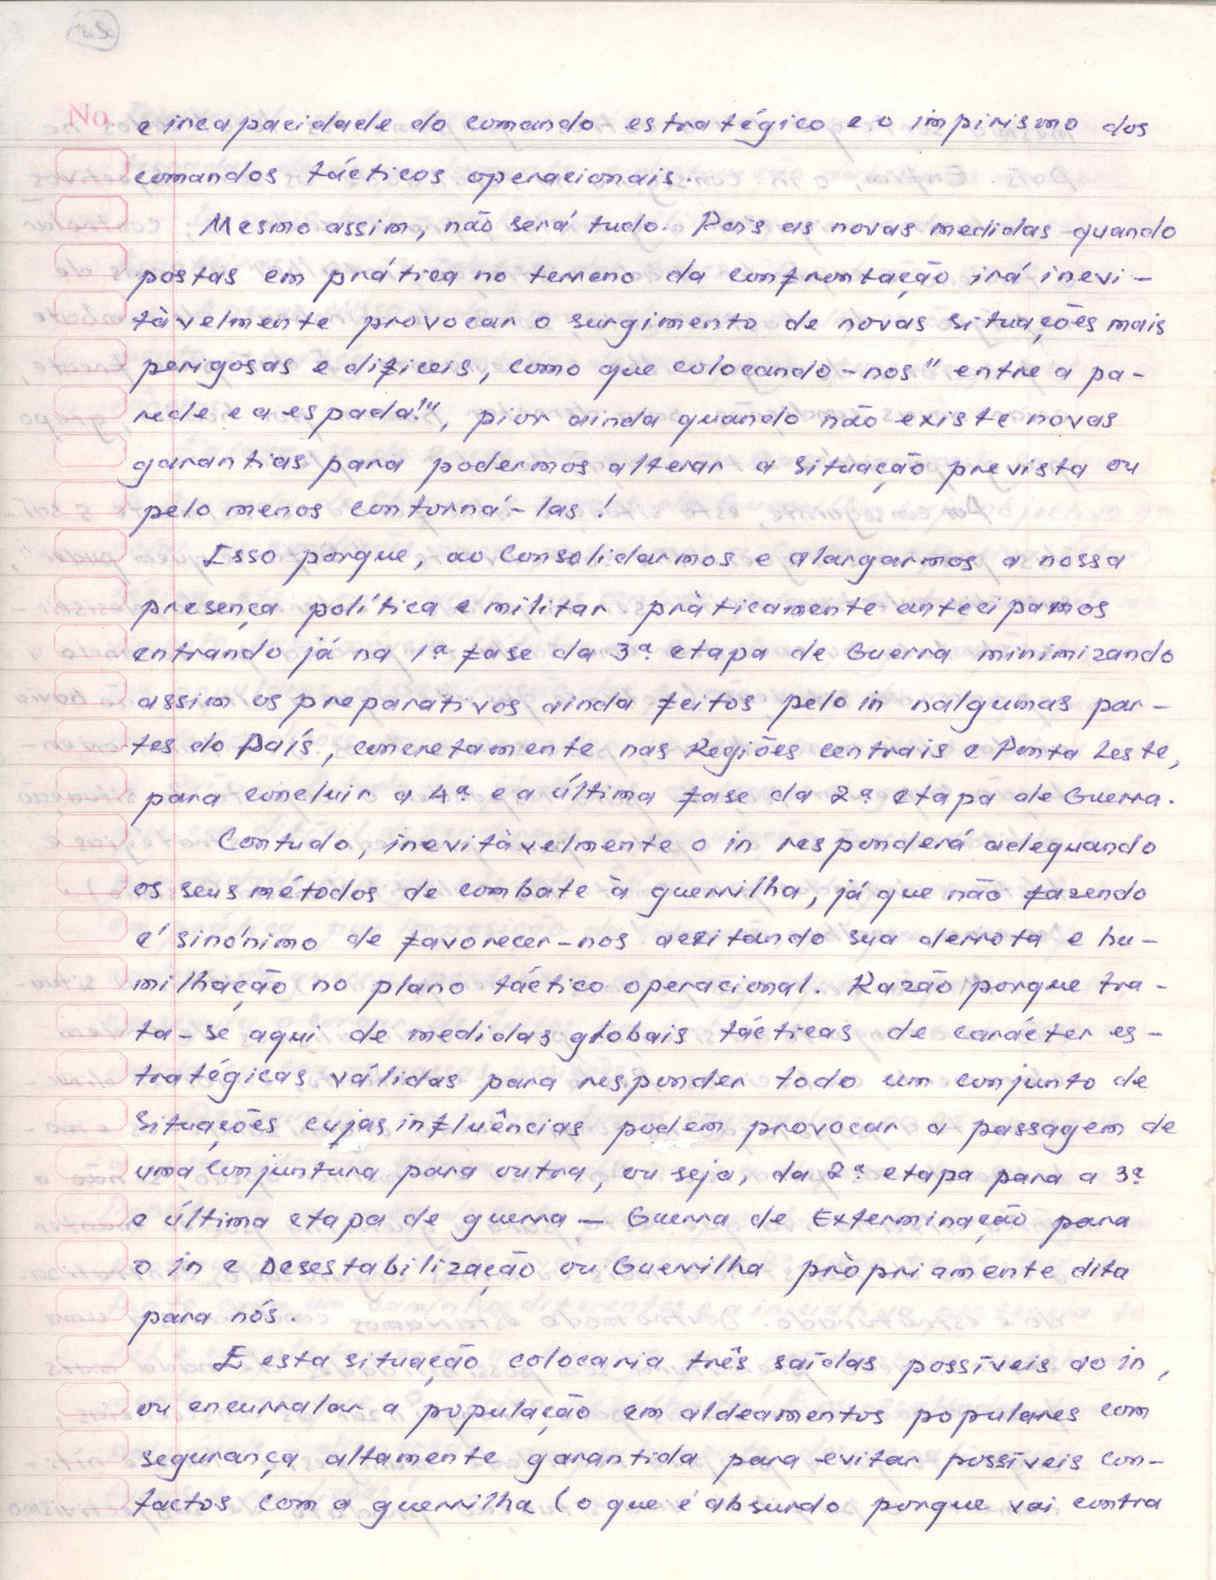 No. e incapacidade do comando estratégico e o impirismo dos
comandos tácticos operacionais.
Mesmo assim, não será tudo. Pois as novas medidas quando
postas em prática no terreno da confrontação irá inevi-
tàvelmente provocar o surgimento de novas situações mais
perigosas e difíceis, como que colocando-nos "entre a pa-
rede e a espada!", pior ainda quando não existe novas
garantias para podermos alterar a situação prevista ou
pelo menos contorná-las!
Isso porque, ao consolidarmos e alargarmos a nossa
presença política e militar pràticamente antecipamos
entrando já na 1ª fase da 3ª etapa de Guerra minimizando
assim os preparativos ainda feitos pelo in nalgumas par-
tes do País, concretamente nas Regiões centrais e Ponta Leste,
para concluir a 4ª e a última fase da 2ª etapa de Guerra.
Contudo, inevitàvelmente o in responderá adequando
os seus métodos de combate à guerrilha, já que não fazendo
é sinónimo de favorecer-nos aceitando sua derrota e hu-
milhação no plano táctico operacional. Razão porque tra-
ta-se aqui de medidas globais tácticas de carácter es-
tratégicas válidas para responder todo um conjunto de
situações cujas influências podem provocar a passagem de
uma conjuntura para outra, ou seja, da 2ª etapa para a 3ª
e última etapa de guerra — Guerra de Exterminação para
o in e Desestabilização ou Guerrilha pròpriamente dita
para nós.
E esta situação colocaria três saídas possíveis ao in,
ou encurralar a população em aldeamentos populares com
segurança altamente garantida para evitar possíveis con-
tactos com a guerrilha (o que é absurdo porque vai contra